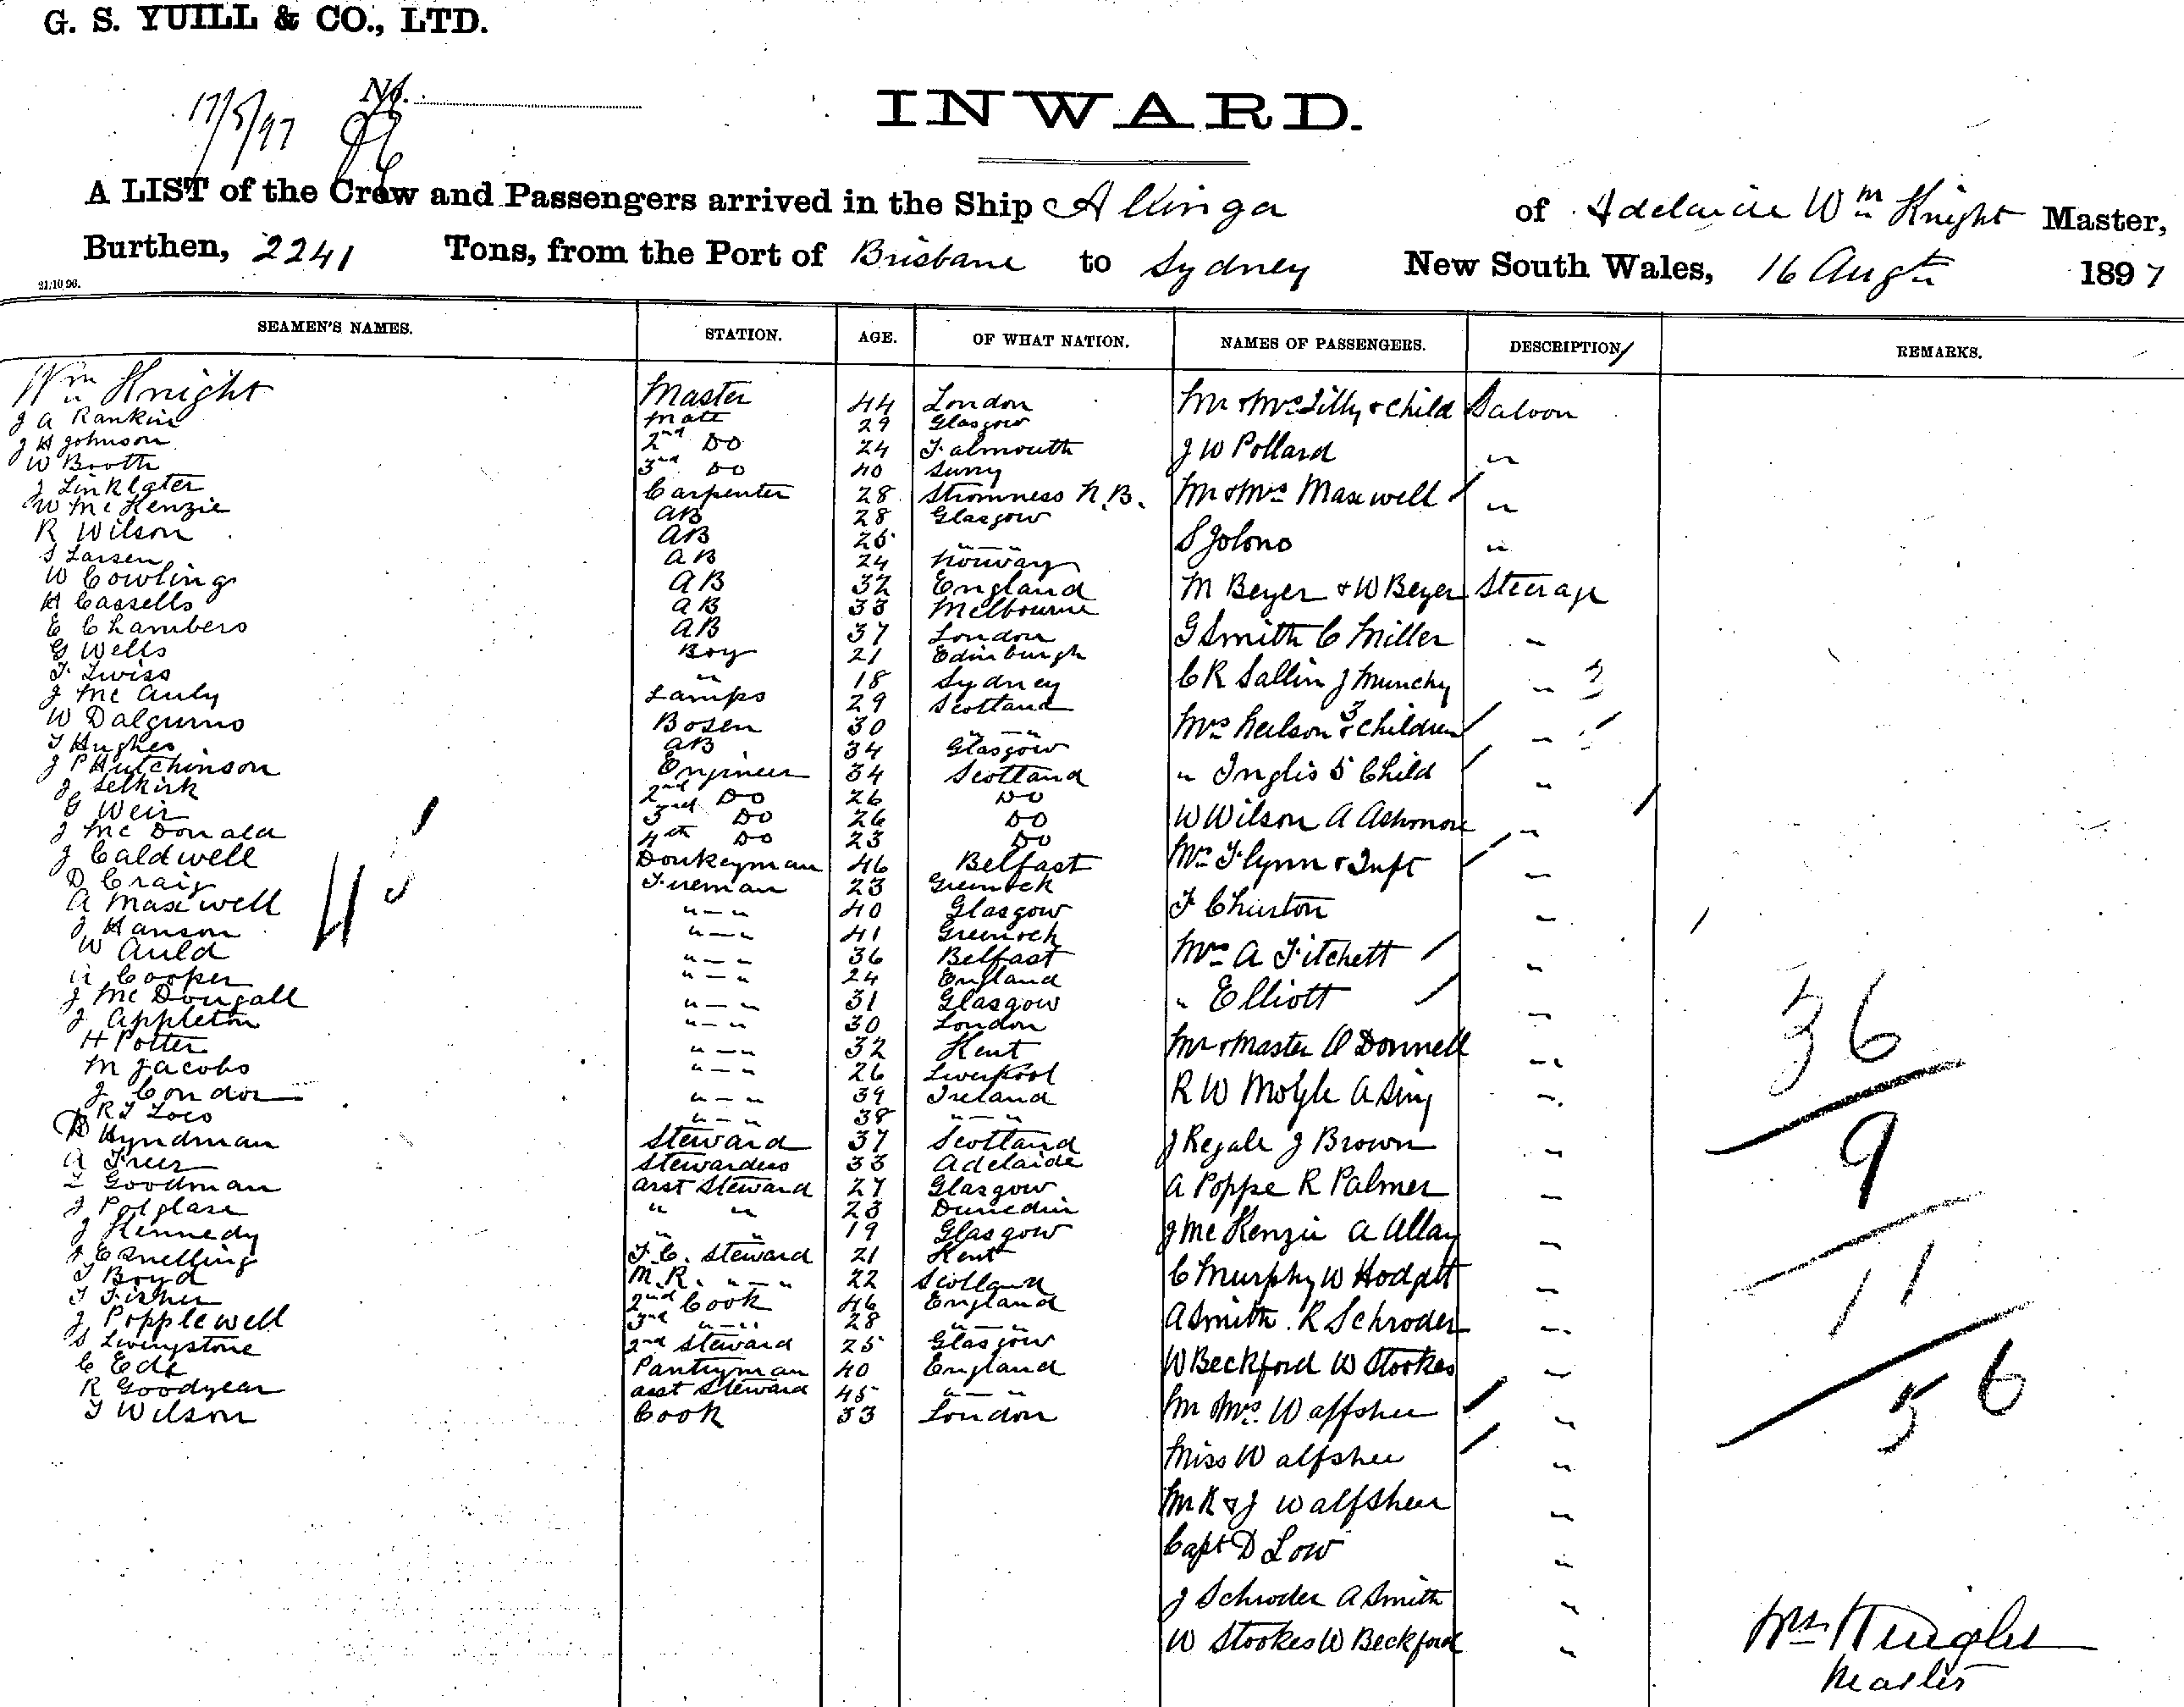 G. S. YUILL & CO., LTD.
17/8/97
No.
INWARD.
A LIST of the Crew and Passengers arrived in the Ship Alkinga of Adelaide Wm Knight Master,
Burthen, 2241 Tons, from the Port of Brisbane to Sydney New South Wales, 16 Augt 1897
21/10/96.
SEAMEN'S NAMES. STATION. AGE. OF WHAT NATION. NAMES OF PASSENGERS. DESCRIPTION REMARKS.
Wm Knight Master 44 London Mr & Mrs Lilly & Child Saloon
J A Rankin Mate 29 Glasgow
J H Johnson 2nd Do 24 Falmouth J W Pollard "
W Booth 3rd Do 40 Surry
J Linklater Carpenter 28 Stromness N.B. Mr & Mrs Maxwell "
W McKenzie AB 28 Glasgow
R Wilson AB 25 " — " S Jolono "
S Larsen AB 24 Norway
W Cowling AB 32 England M Beyer & W Beyer Steerage
H Cassells AB 33 Melbourne
E Chambers AB 37 London G Smith C Miller "
G Wells Boy 21 Edinburgh
F Twiss " 18 Sydney C R Sallin J Munchy "
J McAuly Lamps 29 Scotland
W Dalgurno Bosen 30 " — " Mrs Neilson & 3 Children "
T Hughes AB 34 Glasgow
J P Hutchinson Engineer 34 Scotland " Inglis 5 Child "
J Selkirk 2nd Do 26 Do
G Weir 3rd Do 26 Do W Wilson A Ashmore "
J McDonald 4th Do 23 Do
J Caldwell Donkeyman 46 Belfast Mrs Flynn & Inft "
D Craig Fireman 23 Greenock
A Maxwell " — " 40 Glasgow F Churston "
J Hanson " — " 41 Greenock
W Auld " — " 36 Belfast Mrs A Fitchett "
A Cooper " — " 24 England
J McDougall " — " 31 Glasgow " Elliott "
J Appleton " — " 30 London
H Potter " — " 32 Kent Mr & Master O Donnell "
M Jacobs " — " 26 Liverpool
J Condon " — " 39 Ireland R W Moyle A Sing "
R J Loco " — " 38 " — "
Hyndman Steward 37 Scotland J Regale J Brown "
A Freer Stewardess 33 Adelaide
Goodman asst Steward 27 Glasgow A Poppe R Palmer "
J Polglase " " 23 Dunedin
J Kennedy " " 19 Glasgow J McKenzie A Allay "
J E Snelling F.C. Steward 21 Kent
T Boyd M.R. " — " 22 Scotland C Murphy W Hodgett "
T Fisher 2nd Cook 46 England
J Popplewell 3rd " — " 28 " — " A Smith R Schroder "
S Livingstone 2nd Steward 25 Glasgow
C Ede Pantryman 40 England W Beckford W Stookes "
R Goodyear asst Steward 45 " — "
T Wilson Cook 33 London Mr & Mrs Walfshee "
Miss Walfshee "
Mr R & J Walfsheer "
Capt D Low "
J Schroder A Smith "
W Stookes W Beckford "
36
9
11
56
Wm Knight
Master